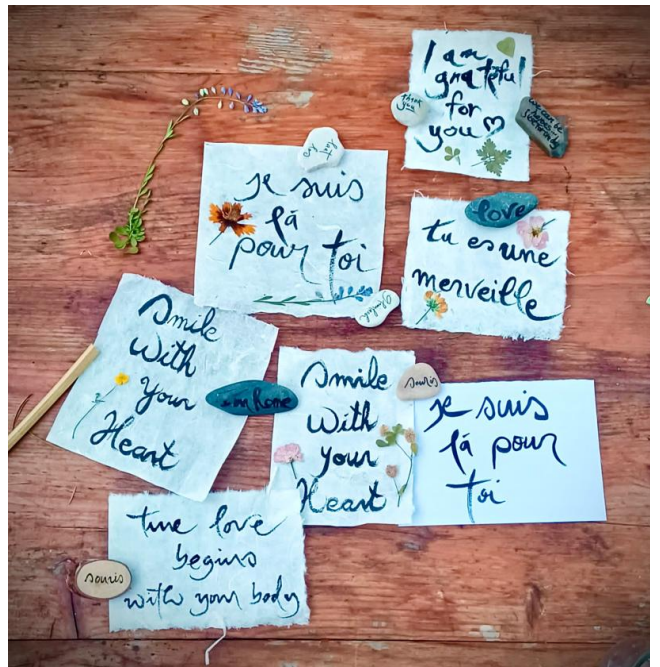 I am
grateful
for
you
thank
you
we can be
heroes
je suis
là
pour toi
love
tu es une
merveille
Smile
With
Your
Heart
I am home
Smile
With
your
Heart
souris
je suis
là pour
toi
true love
begins
with your body
souris